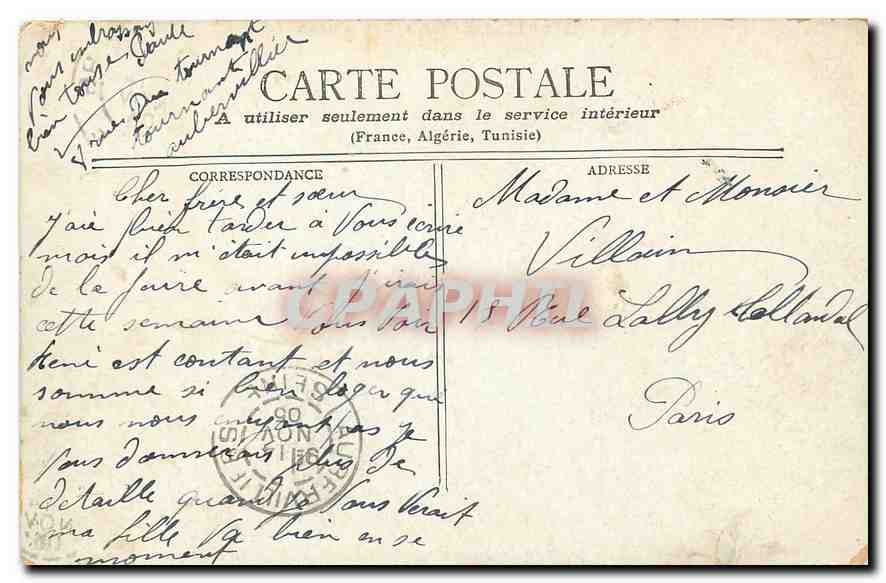 nous
Vous embrassons
bien tous Paule
rue Du tournant
tournant
aubervillier
CARTE POSTALE
A utiliser seulement dans le service intérieur
(France, Algérie, Tunisie)
CORRESPONDANCE
Cher frère et sœur
j'aie bien tarder à Vous écrire
mais il m'était impossibles
de la faire avant j'irais
cette semaine Vous Voir
René est contant et nous
somme si bien loger que
nous nous pas je
Vous donnerais plus de
detaille quand je Vous Verait
ma fille Va bien en se
moment
ADRESSE
Madame et Monsier
Villain
18 Rue Lally Tollandal
Paris
AUBERVILLIERS
SEINE
15
NOV
05
CPAPHIL